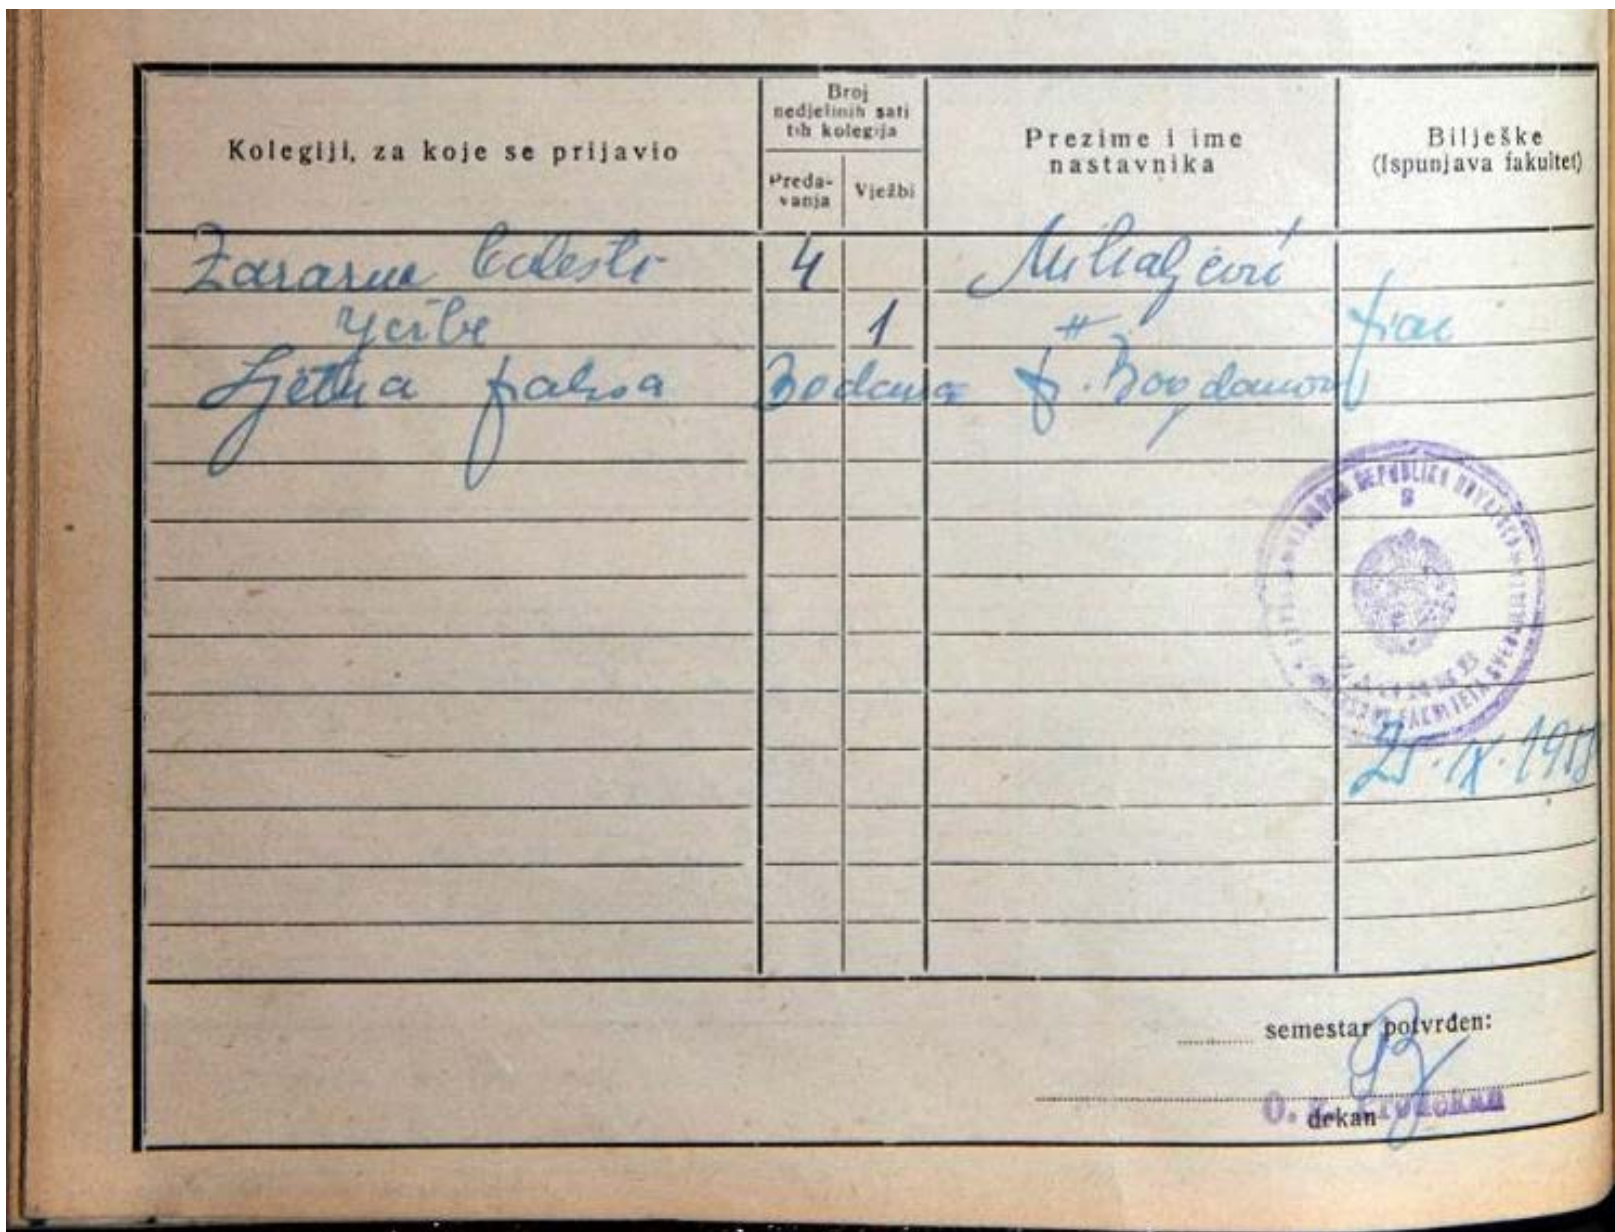 Kolegiji, za koje se prijavio
Broj
nedjeljnih sati
tih kolegija
Preda-
vanja
Vježbi
Prezime i ime
nastavnika
Bilješke
(Ispunjava fakultet)
Zarazne bolesti 4 Mihaljević
Vježbe 1 "
Ljetna praksa 30 dana Bogdanović
REPUBLIKA HRVATSKA
FAKULTETA
25. IX. 1958
semestar potvrđen:
dekan